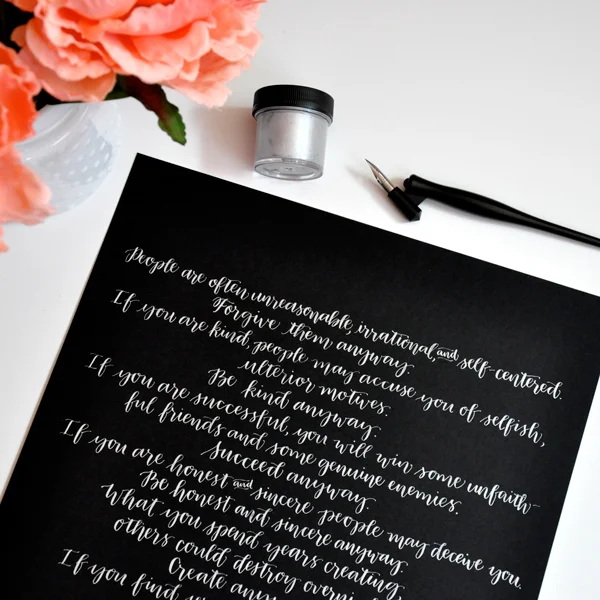 People are often unreasonable, irrational, and self-centered.
Forgive them anyway.
If you are kind, people may accuse you of selfish,
ulterior motives.
Be kind anyway.
If you are successful, you will win some unfaith-
ful friends and some genuine enemies.
Succeed anyway.
If you are honest and sincere people may deceive you.
Be honest and sincere anyway.
What you spend years creating,
others could destroy
Create
If you find